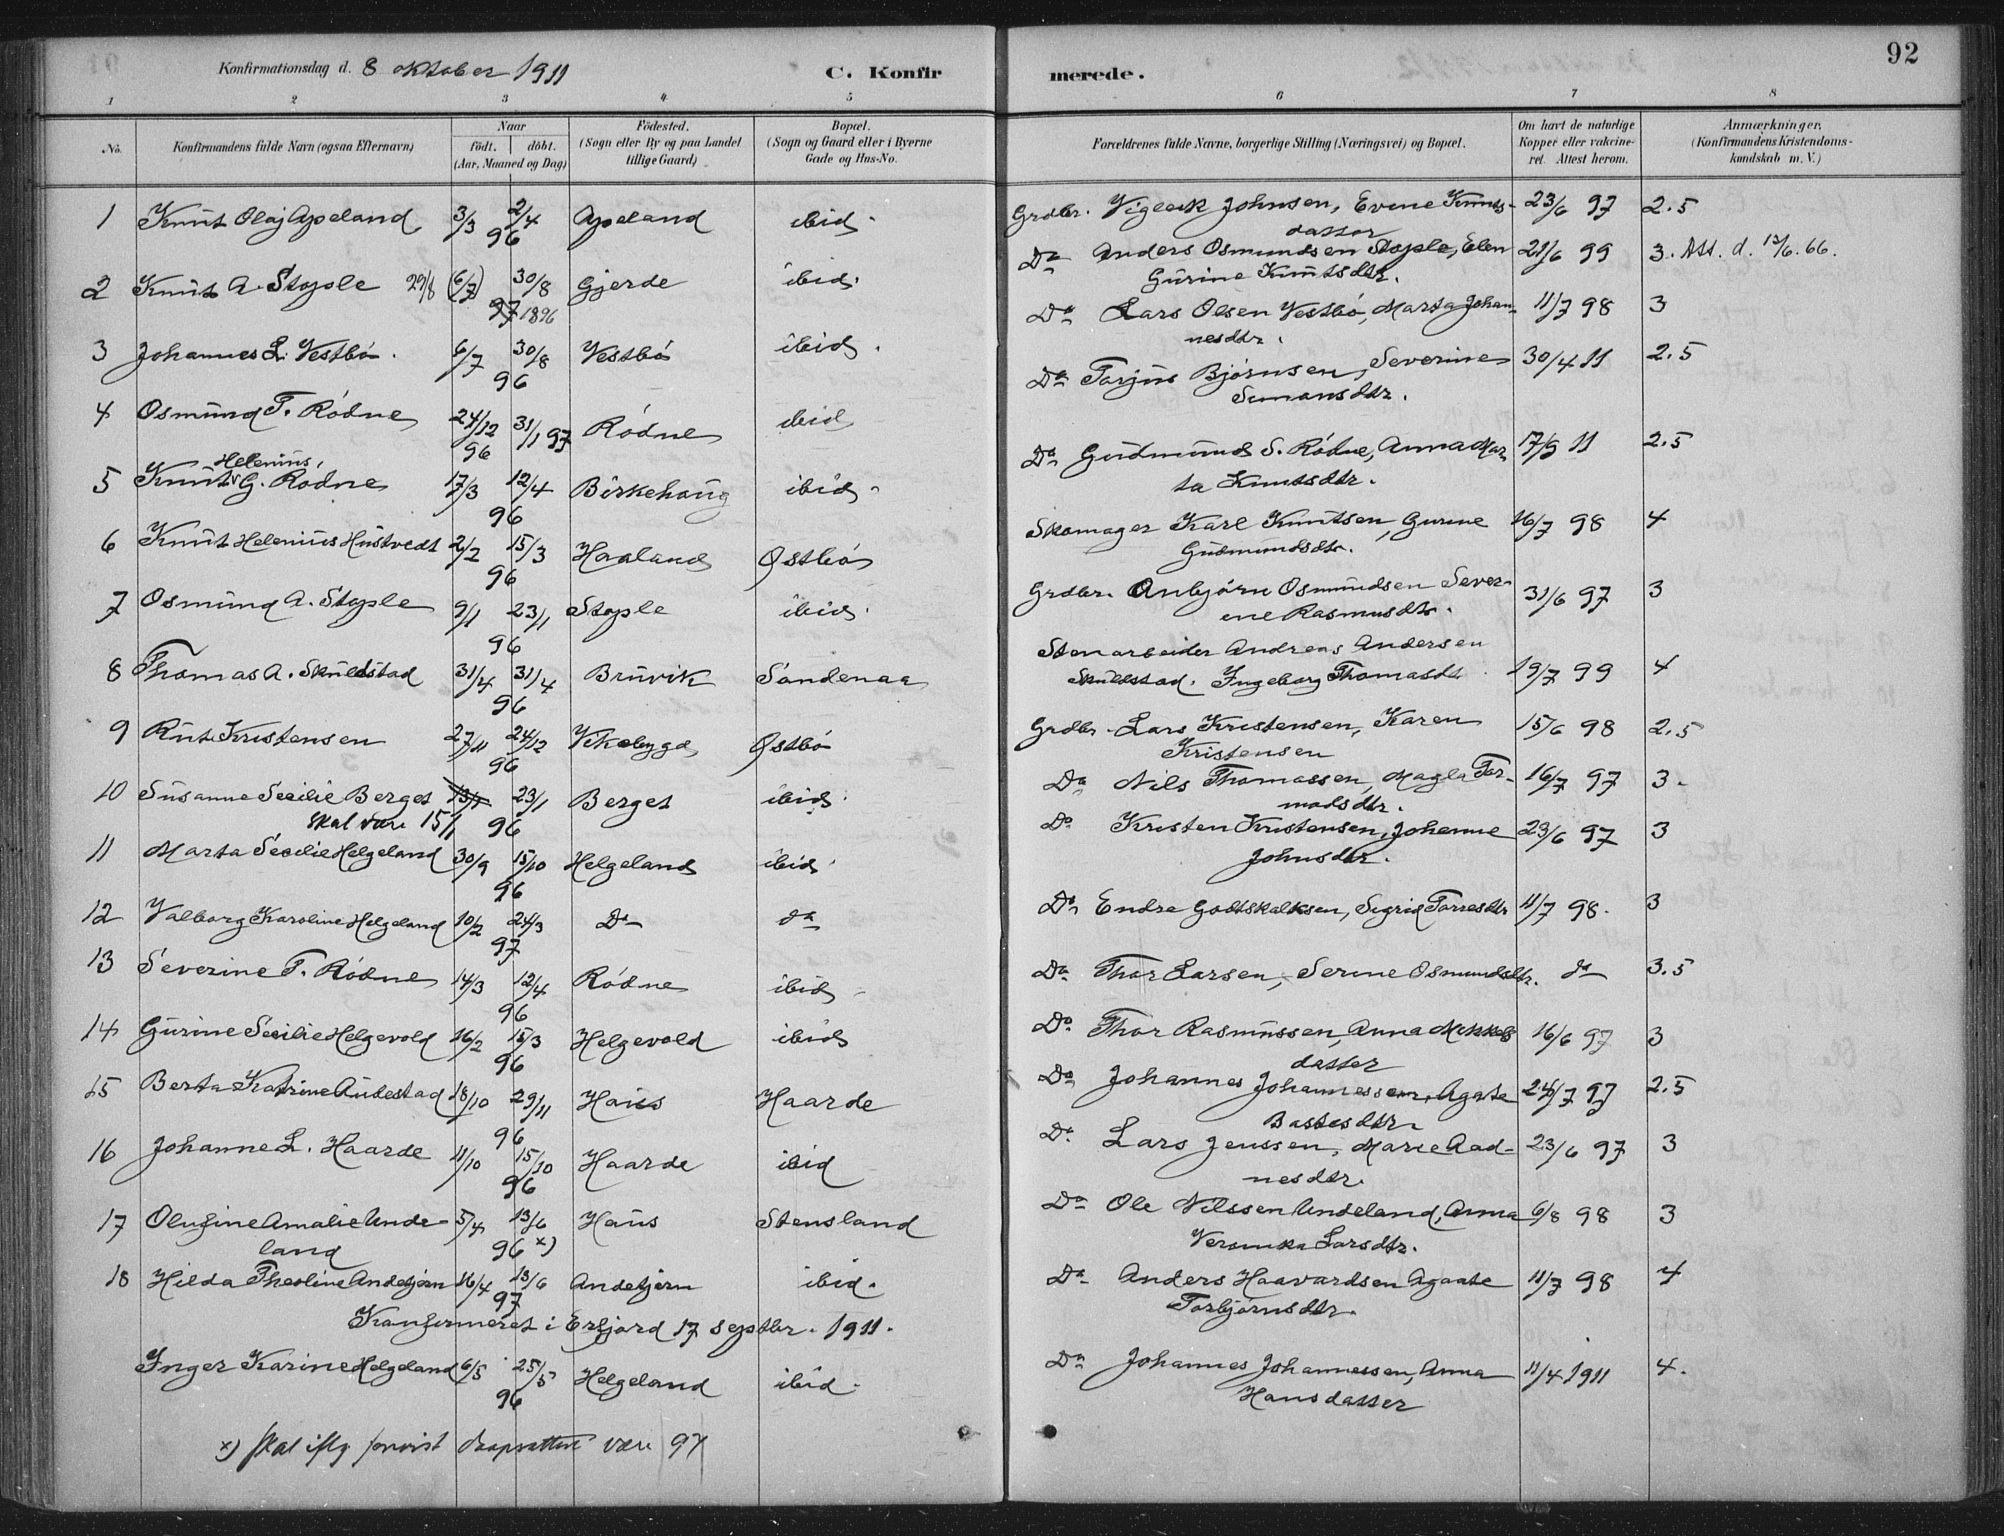 Konfirmationsdag d. 8 oktober 1911 C. Konfirmerede. 92
1 2 3 4 5 6 7 8
No. Konfirmandens fulde Navn (ogsaa Efternavn) Naar født. døbt. (Aar, Maaned og Dag) Fødested. (Sogn eller By og paa Landet tillige Gaard) Bopæl. (Sogn og Gaard eller i Byerne Gade og Hus-No. Forældrenes fulde Navne, borgerlige Stilling (Næringsvei) og Bopæl. Om havt de naturlige Kopper eller vakcineret. Attest herom. Anmærkninger. (Konfirmandens Kristendomskundskab m. V.)
1 Knut Olaj Apeland 3/3 2/4 96 Apeland ibid. Grdbr. Vigleik Johnsen, Evine Knutsdatter 23/6 97 2.5
2 Knut A. Stople 29/8 (6/7) 30/8 97 1896 Gjerde ibid. Do Anders Osmundsen Stople, Elen Gurine Knutsdtr. 21/6 99 3. Att. d. 13/6.66.
3 Johannes L. Vestbø. 6/7 30/8 96 Vestbø ibid. Do Lars Olsen Vestbø, Marta Johannesdtr. 11/7 98 3
4 Osmund T. Rødne 24/12 96 31/1 97 Rødne ibid Do Torjus Bjørnsen, Severine Simonsdtr. 30/4 11 2.5
5 Knut Helenius G. Rødne 17/3 12/4 96 Birkehaug ibid. Do Gudmund S. Rødne, Anna Marta Knutsdtr. 17/9 11 2.5
6 Knut Helenius Hustvedt 2/2 15/3 96 Haaland Østbø Skomager Karl Knutsen, Gurine Gudmundsdtr. 16/7 98 4
7 Osmund A. Stople 9/1 23/1 96 Stople ibid. Grdbr. Anbjørn Osmundsen Severine Rasmusdtr. 31/6 97 3
8 Thomas A. Skuldstad 31/4 31/4 96 Bruvik Søndenaa Stenarbeider Andreas Andersen Skuldstad. Ingeborg Thomasdt. 19/7 99 4
9 Rut Kristensen 27/11 24/12 96 Vikebygd Østbø Grdbr. Lars Kristensen, Karen Kristensen 15/6 98 2.5
10 Susanne Secilie Berget 13/1 23/1 96 Berget ibid. Do Nils Thomassen, Magla Tormodsdtr. 16/7 97 3.
skal være 15/1
11 Marta Secilie Helgeland 30/9 15/10 96 Helgeland ibid. Do Kristen Kristensen, Johanne Johnsdtr. 23/6 97 3
12 Valborg Karoline Helgeland 10/2 24/3 97 Do do Do Endre Godtskalksen, Sigrid Torresdtr 11/7 98. 3
13 Severine T. Rødne 14/3 12/4 96 Rødne ibid Do Thor Larsen, Serine Osmundsdtr. do 3.5
14 Gurine Secilie Helgevold 16/2 15/3 96 Helgevold ibid Do Thor Rasmussen, Anna Mikkelsdatter 16/6 97 3
15 Berta Katrine Audestad 18/10 29/11 96 Haus Haarde Do Johannes Johannessen, Agate Bastesdtr. 24/7 97 2.5
16 Johanne L. Haarde 11/10 15/10 96 Haarde ibid Do Lars Jenssen, Marie Aadnesdtr. 23/6 97 3
17 Olufine Amalie Undeland 5/4 13/6 96 x) Haus Stensland Do Ole Nilssen Undeland, Anna Veronika Larsdtr. 6/8 98 3
18 Hilda Theoline Andetjern 16/4 13/6 97 Andetjern ibid. Do Anders Haavardsen Agaate Torbjørnsdtr. 11/7 98 4
Konfirmeret i Erfjord 17 septbr. 1911.
Inger Karine Helgeland 6/5 25/5 96 Helgeland ibid. Do Johannes Johannessen, Anna Hansdatter 11/4 1911 4.
x) skal iflg forevist daapsattest være 97